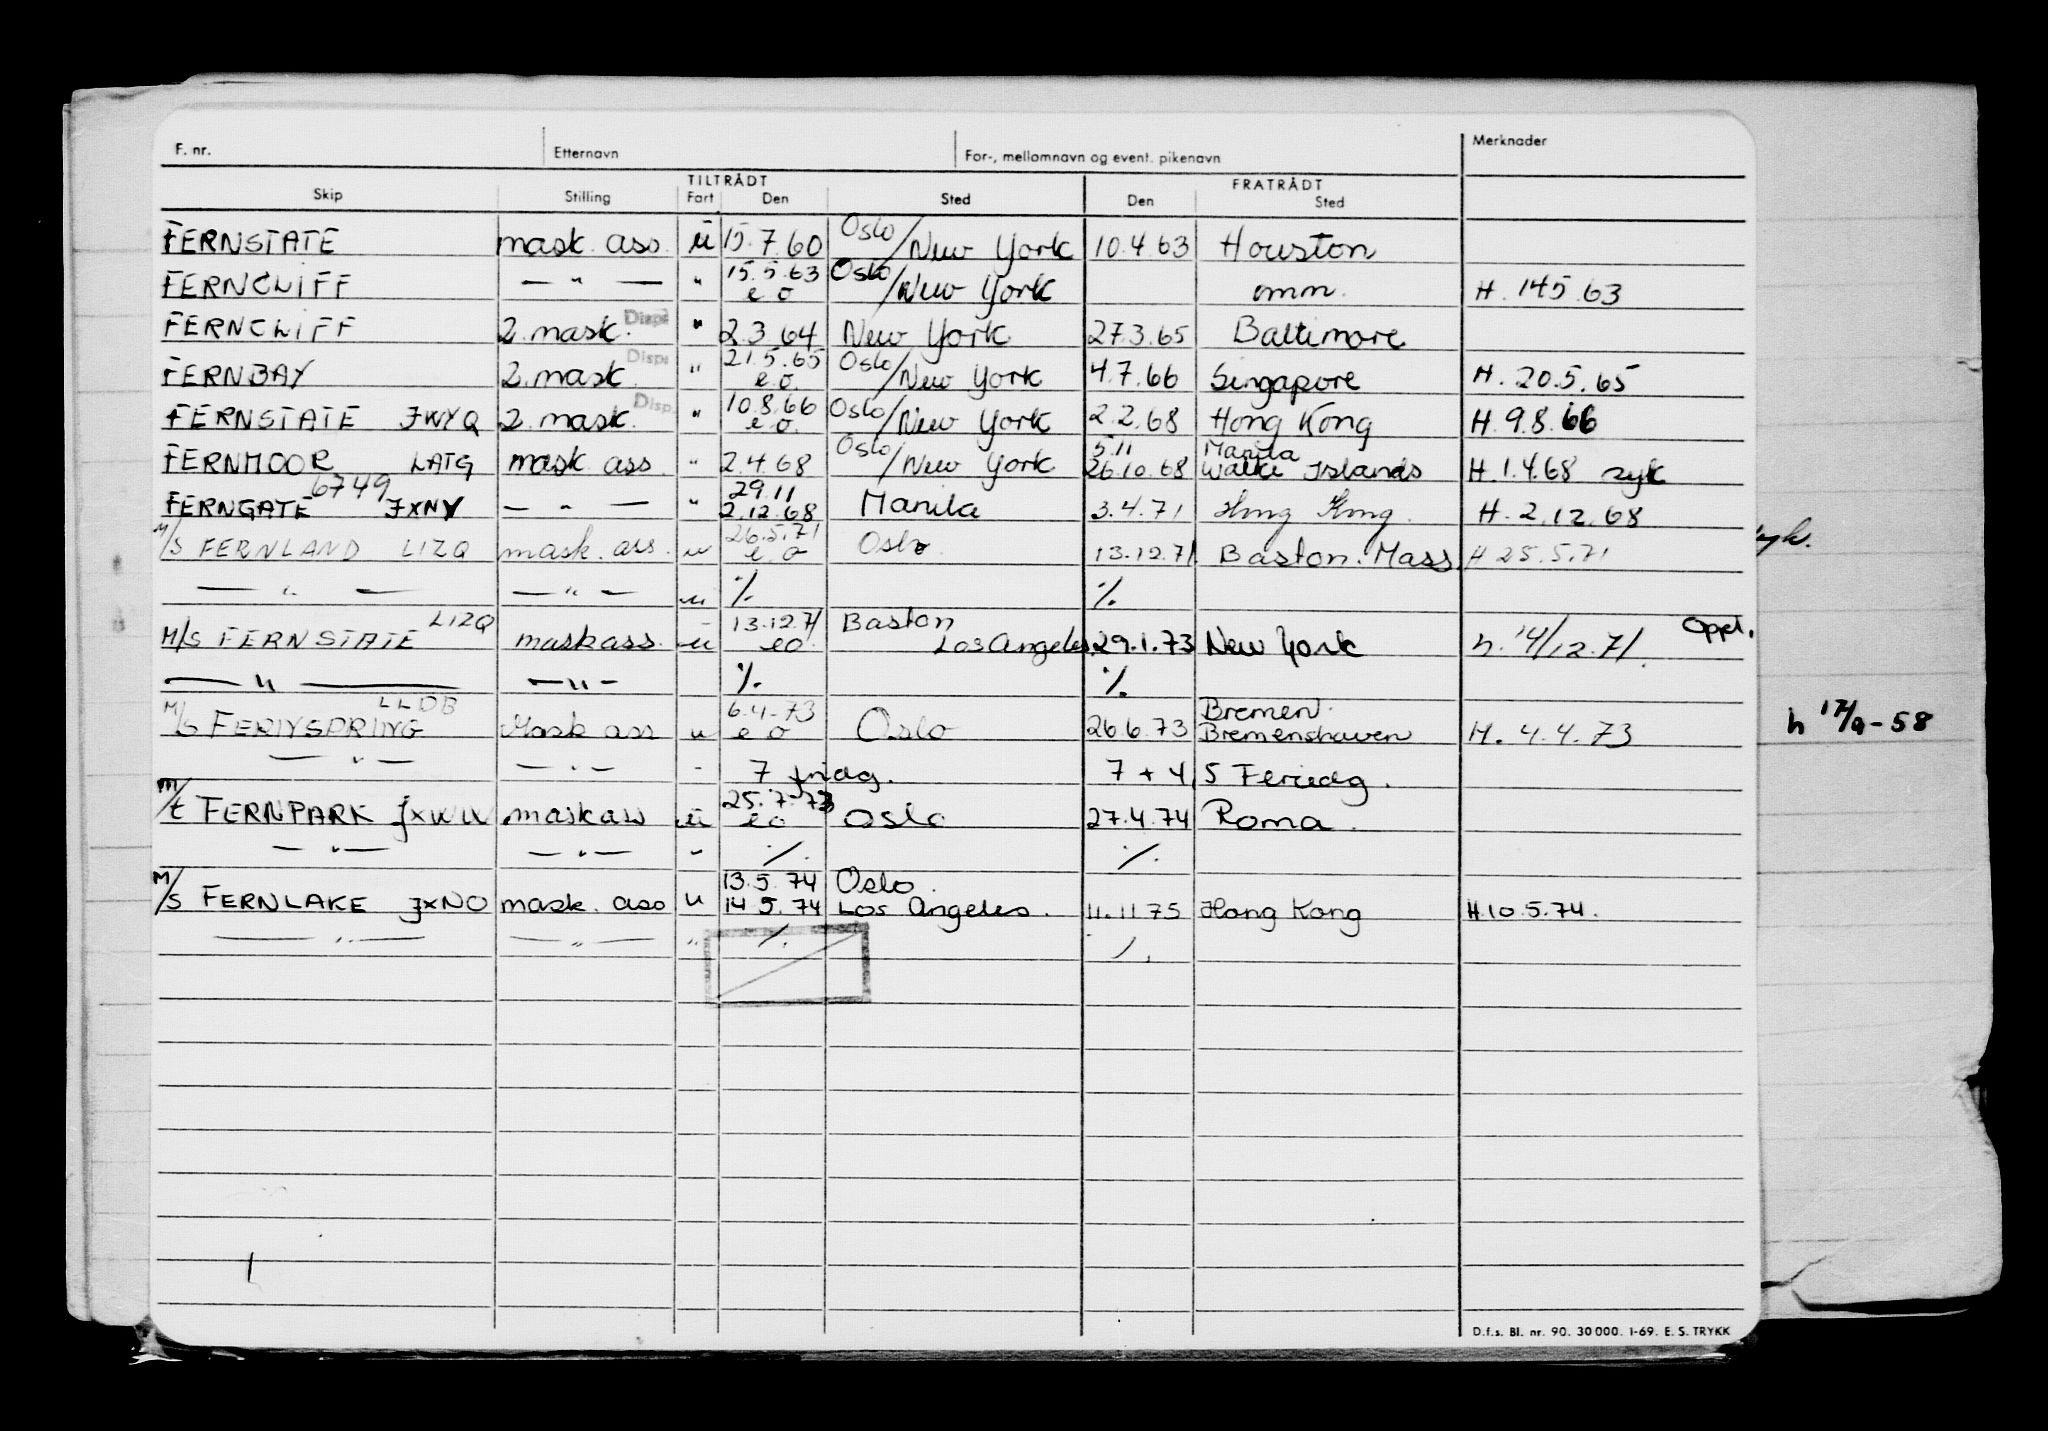 F. nr. Etternavn For-, mellomnavn og event. pikenavn Merknader
TILTRÅDT FRATRÅDT
Skip Stilling Fart Den Sted Den Sted
FERNSTATE mask. ass. u 15.7.60 Oslo/New York 10.4.63 Houston
FERNCLIFF — " — " 15.5.63 e o Oslo/New York omm. H. 14 5.63
FERNCLIFF 2. mask. Disp " 2.3.64 New York 27.3.65 Baltimore
FERNBAY 2. mask. Disp " 21.5.65 e.o. Oslo/New York 4.7.66 Singapore H. 20.5.65
FERNSTATE JWYQ 2. mask. Disp. " 10.8.66 e o. Oslo/New York 2.2.68 Hong Kong H. 9.8.66
FERNMOOR LATG mask ass. " 2.4.68 Oslo/New York 5.11 26.10.68 Manila Islands H. 1.4.68 syk
6749
FERNGATE JXNY — " — " 29.11 2.12.68 Manila 3.4.71 Hong Kong. H. 2.12.68
M/S FERNLAND LIZQ mask. ass. u 26.5.71 e o Oslo 13.12.71 Baston. Mass. H 25.5.71
— " — — " — u ./. ./.
M/S FERNSTATE LIZQ maskass. u 13.12.71 eo. Baston Los Angeles. 29.1.73 New York h. 14/12.71. Oppl.
— " — — " — ./. ./.
M/S FERNSPRING LLDB Mask ass u 6.4-73 e o Oslo 26.6.73 Bremen. Bremenshaven H. 4.4.73
h 17/9-58
— " — — " — - 7 fridg. 7 + 4,5 Feriedg.
M/t FERNPARK JXWW maskass u 25.7.73 eo Oslo 27.4.74 Roma.
— " — — " — " ./. ./.
M/S FERNLAKE JXNO mask. ass u 13.5.74 Oslo. 14 5.74 Los Angeles. 11.11 75 Hong Kong H.10.5.74.
— " — — " — " ./. ./.
D.f.s. Bl. nr. 90. 30 000. 1-69. E. S. TRYKK